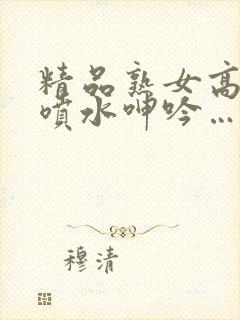 精品熟女高
喷水呻吟…
穆清